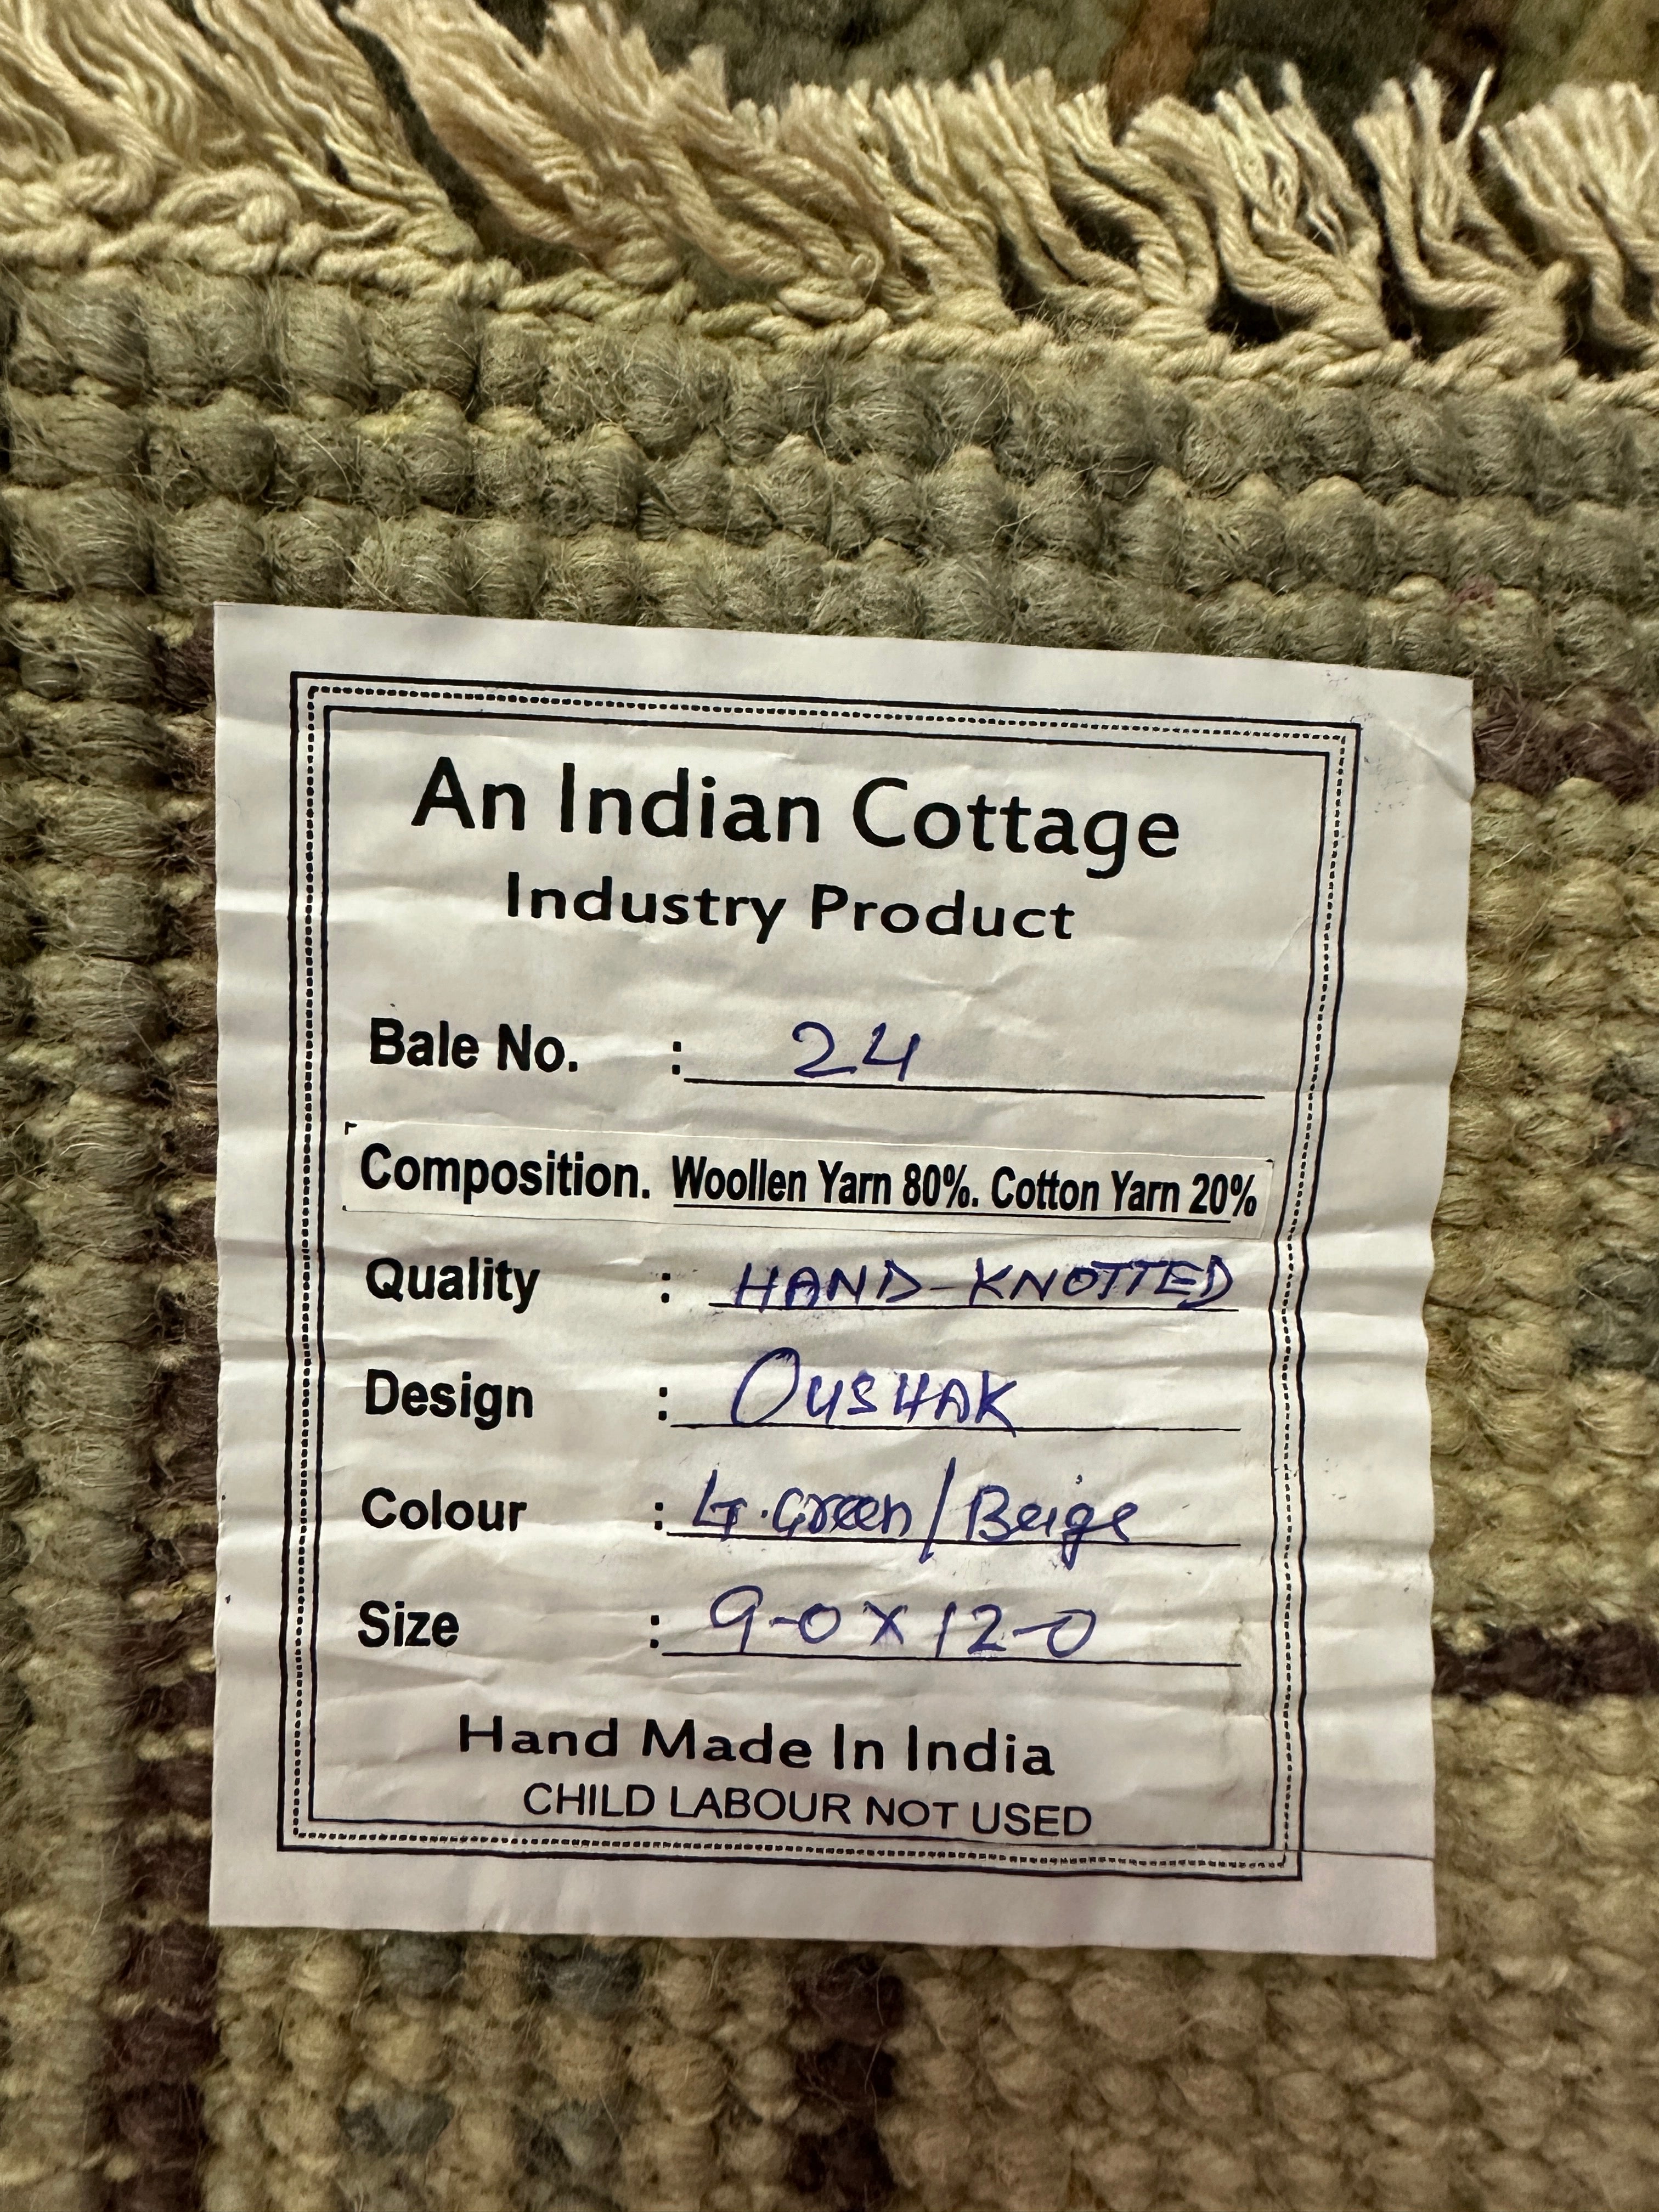 An Indian Cottage
Industry Product
Bale No. : 24
Composition. Woollen Yarn 80%. Cotton Yarn 20%
Quality : HAND-KNOTTED
Design : OUSHAK
Colour : LT. Green / Beige
Size : 9-0 X 12-0
Hand Made In India
CHILD LABOUR NOT USED